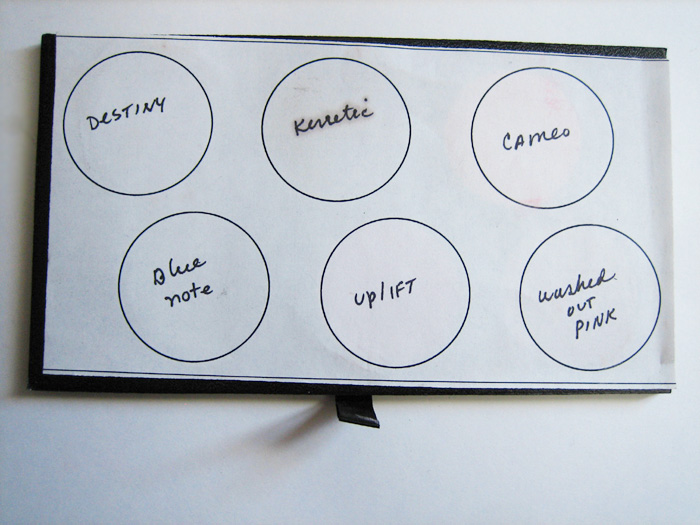 DESTINY
Kerretic
CAMEO
Blue
note
uplIFT
washed
OUT
PINK